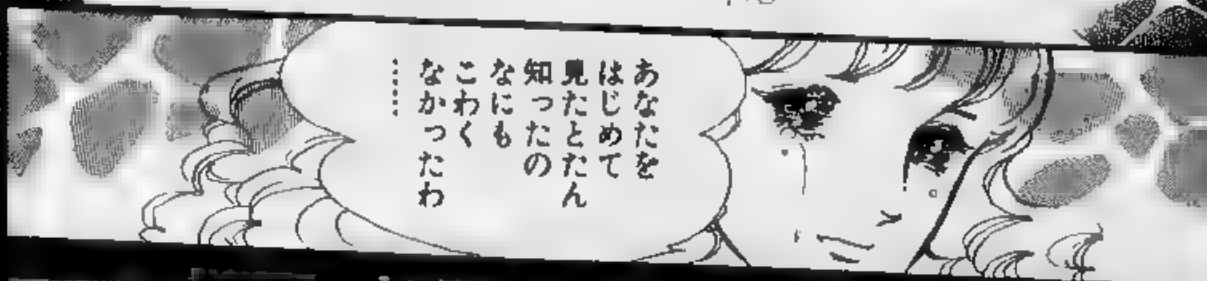 あなたを
はじめて
見たとたん
知ったの
なにも
こわく
なかったわ
……